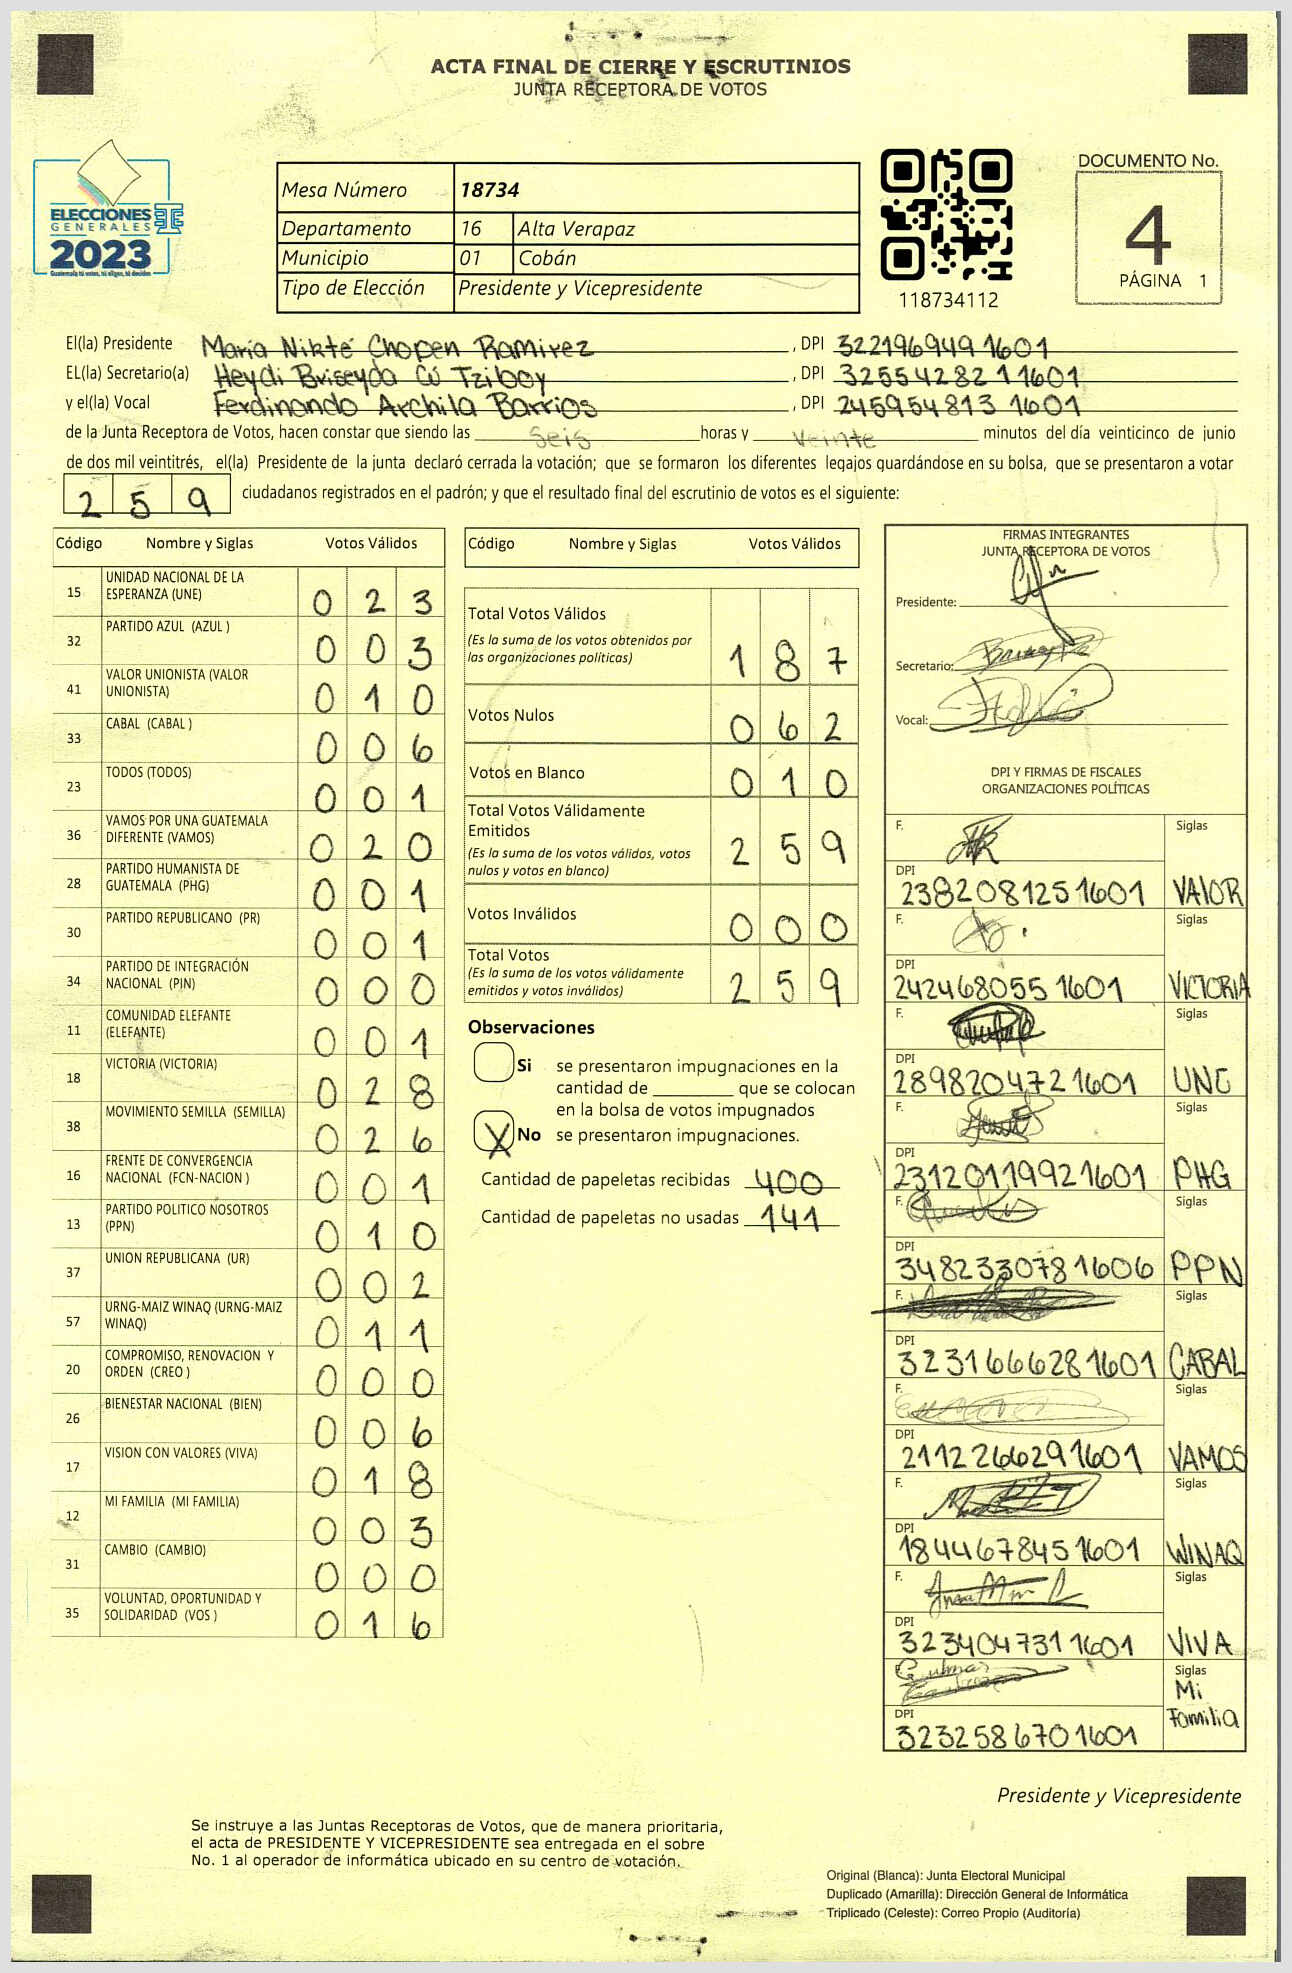 ACTA FINAL DE CIERRE Y ESCRUTINIOS
JUNTA RECEPTORA DE VOTOS
ELECCIONES
GENERALES
2023
Guatemala tú votas, tú eliges, tú decides
Mesa Número 18734
Departamento 16 Alta Verapaz
Municipio 01 Cobán
Tipo de Elección Presidente y Vicepresidente
118734112
DOCUMENTO No.
4
PÁGINA 1
El(la) Presidente María Nikté Chopen Ramirez , DPI 322196949 1601
EL(la) Secretario(a) Heydi Briseyda Cú Tziboy , DPI 325542821 1601
y el(la) Vocal Ferdinando Archila Barrios , DPI 245954813 1601
de la Junta Receptora de Votos, hacen constar que siendo las Seis horas y veinte minutos del día veinticinco de junio
de dos mil veintitrés, el(la) Presidente de la junta declaró cerrada la votación; que se formaron los diferentes legajos guardándose en su bolsa, que se presentaron a votar
259 ciudadanos registrados en el padrón; y que el resultado final del escrutinio de votos es el siguiente:
Código Nombre y Siglas Votos Válidos
15 UNIDAD NACIONAL DE LA ESPERANZA (UNE) 023
32 PARTIDO AZUL (AZUL ) 003
41 VALOR UNIONISTA (VALOR UNIONISTA) 010
33 CABAL (CABAL ) 006
23 TODOS (TODOS) 001
36 VAMOS POR UNA GUATEMALA DIFERENTE (VAMOS) 020
28 PARTIDO HUMANISTA DE GUATEMALA (PHG) 001
30 PARTIDO REPUBLICANO (PR) 001
34 PARTIDO DE INTEGRACIÓN NACIONAL (PIN) 000
11 COMUNIDAD ELEFANTE (ELEFANTE) 001
18 VICTORIA (VICTORIA) 028
38 MOVIMIENTO SEMILLA (SEMILLA) 026
16 FRENTE DE CONVERGENCIA NACIONAL (FCN-NACION ) 001
13 PARTIDO POLITICO NOSOTROS (PPN) 010
37 UNION REPUBLICANA (UR) 002
57 URNG-MAIZ WINAQ (URNG-MAIZ WINAQ) 011
20 COMPROMISO, RENOVACION Y ORDEN (CREO ) 000
26 BIENESTAR NACIONAL (BIEN) 006
17 VISION CON VALORES (VIVA) 018
12 MI FAMILIA (MI FAMILIA) 003
31 CAMBIO (CAMBIO) 000
35 VOLUNTAD, OPORTUNIDAD Y SOLIDARIDAD (VOS ) 016
Código Nombre y Siglas Votos Válidos
Total Votos Válidos 187
(Es la suma de los votos obtenidos por
las organizaciones políticas)
Votos Nulos 062
Votos en Blanco 010
Total Votos Válidamente
Emitidos 259
(Es la suma de los votos válidos, votos
nulos y votos en blanco)
Votos Inválidos 000
Total Votos 259
(Es la suma de los votos válidamente
emitidos y votos inválidos)
Observaciones
Si se presentaron impugnaciones en la
cantidad de ________ que se colocan
en la bolsa de votos impugnados
X No se presentaron impugnaciones.
Cantidad de papeletas recibidas 400
Cantidad de papeletas no usadas 141
FIRMAS INTEGRANTES
JUNTA RECEPTORA DE VOTOS
Presidente:
Secretario:
Vocal:
DPI Y FIRMAS DE FISCALES
ORGANIZACIONES POLÍTICAS
F. Siglas
DPI
2382081251601 VALOR
F. Siglas
DPI
242468055 1601 VICTORIA
F. Siglas
DPI
2898204721601 UNE
F. Siglas
DPI
2312011992 1601 PHG
F. Siglas
DPI
3482330781606 PPN
F. Siglas
DPI
3231666281601 CABAL
F. Siglas
DPI
2112266291601 VAMOS
F. Siglas
DPI
1844678451601 WINAQ
F. Siglas
DPI
3234047311601 VIVA
F. Siglas
Mi
Familia
DPI
3232586701601
Presidente y Vicepresidente
Se instruye a las Juntas Receptoras de Votos, que de manera prioritaria,
el acta de PRESIDENTE Y VICEPRESIDENTE sea entregada en el sobre
No. 1 al operador de informática ubicado en su centro de votación.
Original (Blanca): Junta Electoral Municipal
Duplicado (Amarilla): Dirección General de Informática
Triplicado (Celeste): Correo Propio (Auditoría)